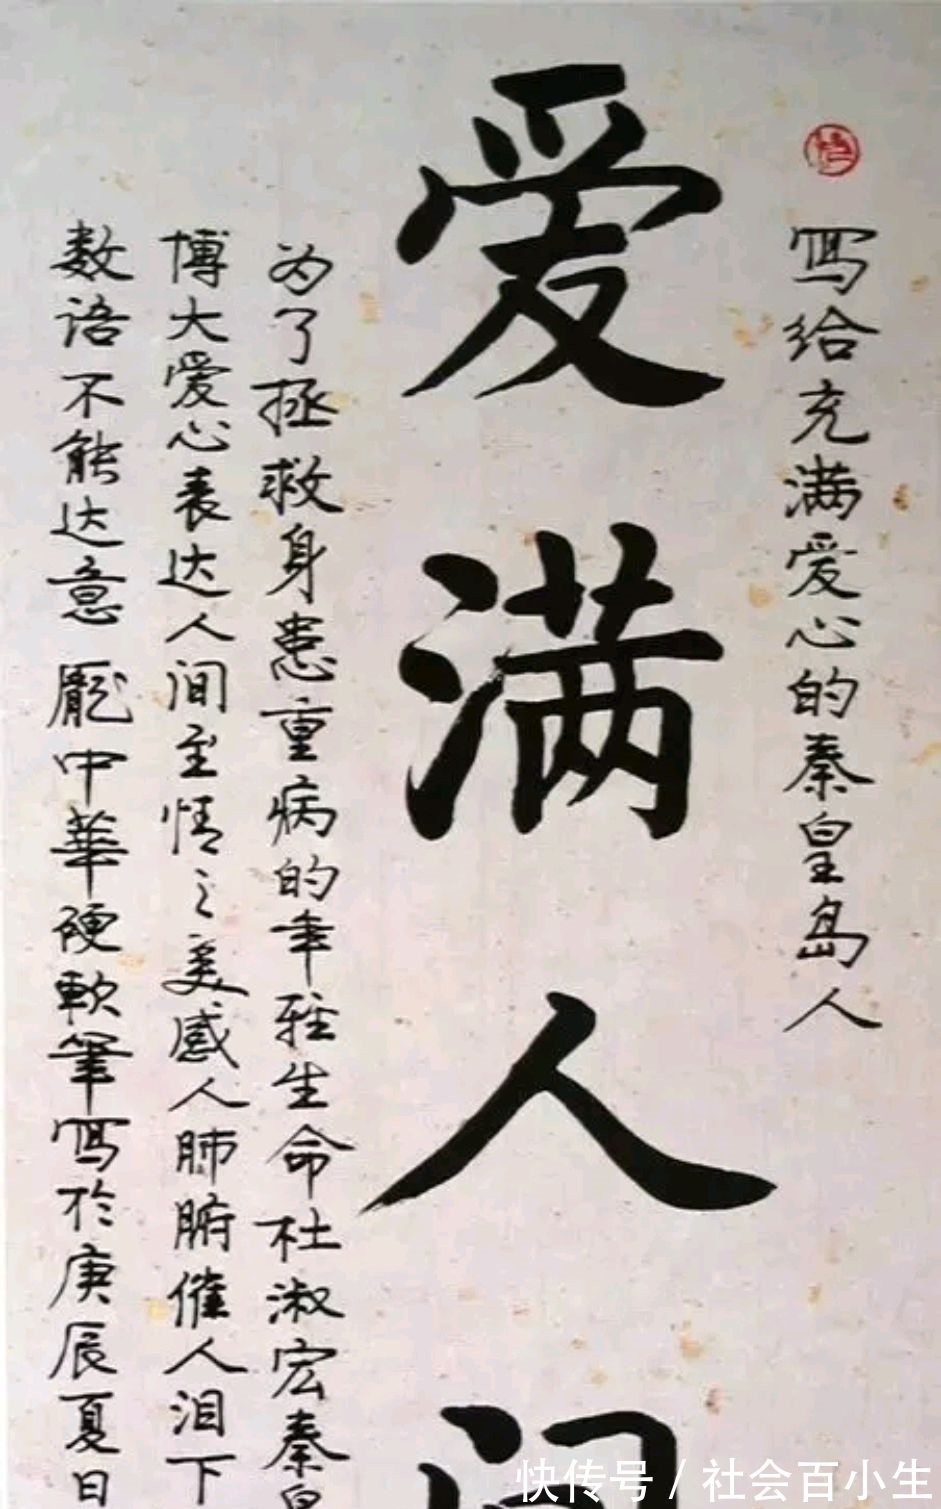 写给充满爱心的秦皇岛人
爱满人间
为了拯救身患重病的幸雅生命杜淑宏秦皇
博大爱心表达人间至情之美感人肺腑催人泪下
数语不能达意龐中華硬軟筆写于庚辰夏日
快传号/社会百小生